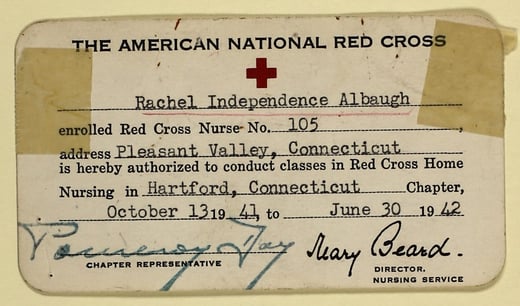 THE AMERICAN NATIONAL RED CROSS
Rachel Independence Albaugh
enrolled Red Cross Nurse No. 105,
address Pleasant Valley, Connecticut
is hereby authorized to conduct classes in Red Cross Home
Nursing in Hartford, Connecticut Chapter,
October 13 1941, to June 30 1942
Pomeroy Day Mary Beard.
CHAPTER REPRESENTATIVE DIRECTOR,
NURSING SERVICE